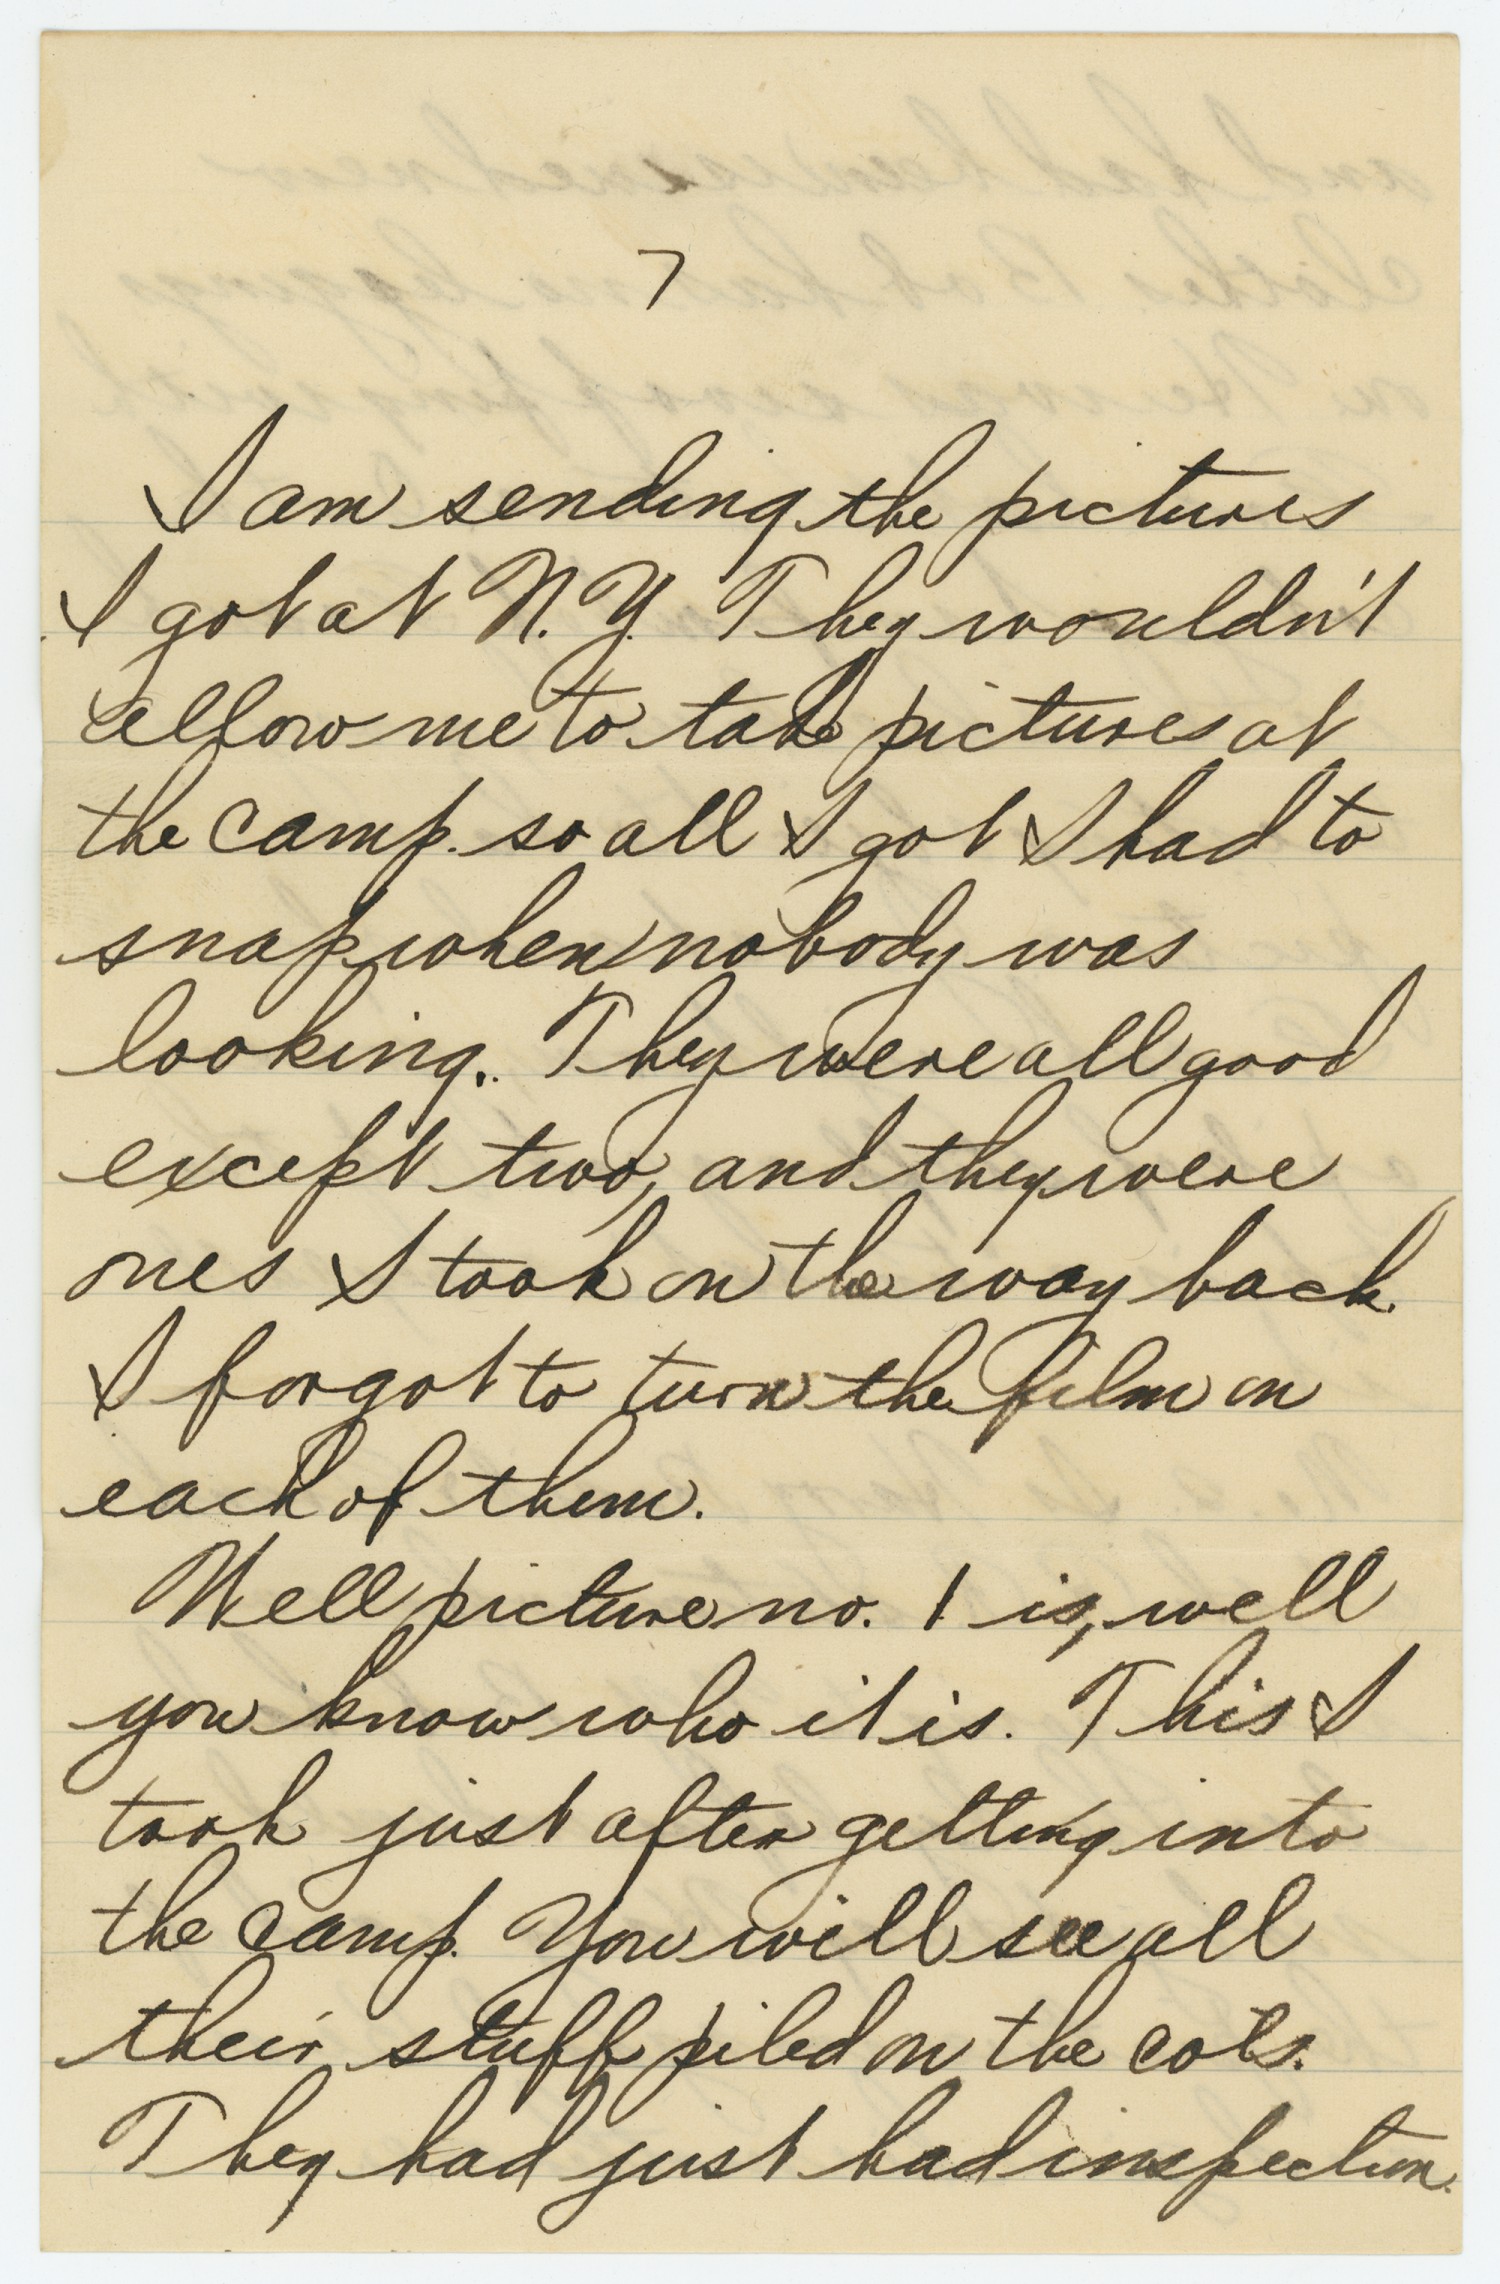 7
I am sending the pictures
I got at N.Y. They wouldn't
allow me to take pictures at
the camp. so all I got I had to
snap when nobody was
looking. They were all good
except two, and they were
ones I took on the way back.
I forgot to turn the film on
each of them.
Well picture no. 1 is, well
you know who it is. This I
took just after getting into
the camp. You will see all
their stuff piled on the cots.
They had just had inspection.